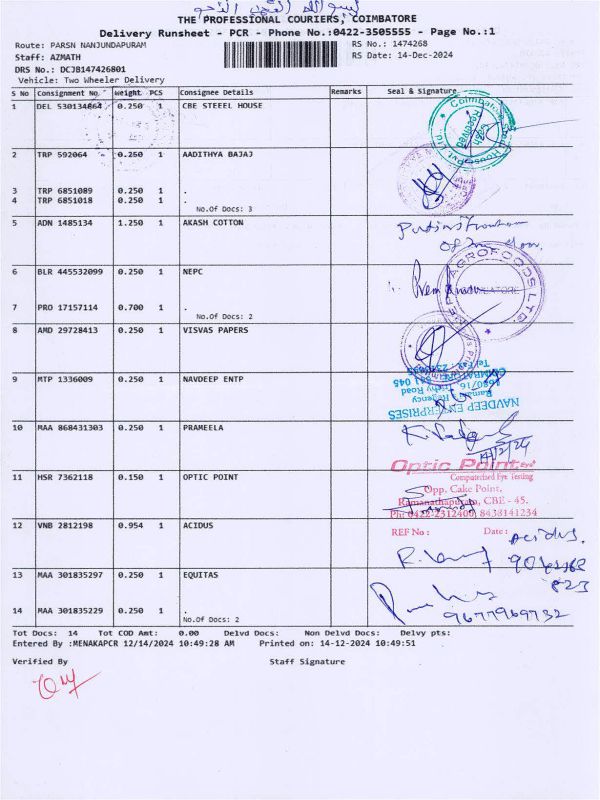 THE PROFESSIONAL COURIERS, COIMBATORE
Delivery Runsheet - PCR - Phone No.:0422-3505555 - Page No.:1
Route: PARSN NANJUNDAPURAM
RS No.: 1474268
Staff: AZMATH
RS Date: 14-Dec-2024
DRS No.: DCJB147426801
Vehicle: Two Wheeler Delivery
S No Consignment No. Weight PCS Consignee Details Remarks Seal & Signature
1 DEL 530134864 0.250 1 CBE STEEEL HOUSE
2 TRP 592064 0.250 1 AADITHYA BAJAJ
3 TRP 6851089 0.250 1 .
4 TRP 6851018 0.250 1 .
No.Of Docs: 3
5 ADN 1485134 1.250 1 AKASH COTTON
6 BLR 445532099 0.250 1 NEPC
AGROFOODS LTD
7 PRO 17157114 0.700 1 .
No.Of Docs: 2
8 AMD 29728413 0.250 1 VISVAS PAPERS
9 MTP 1336009 0.250 1 NAVDEEP ENTP
NAVDEEP ENTERPRISES
10 MAA 868431303 0.250 1 PRAMEELA
14/12/24
Optic Point
Computerised Eye Testing
11 HSR 7362118 0.150 1 OPTIC POINT
Opp. Cake Point,
Ramanathapuram, CBE - 45.
Ph: 0422-2312400, 8438141234
12 VNB 2812198 0.954 1 ACIDUS
REF No : Date :
Acidus.
13 MAA 301835297 0.250 1 EQUITAS
14 MAA 301835229 0.250 1 .
9677969732
No.Of Docs: 2
Tot Docs: 14 Tot COD Amt: 0.00 Delvd Docs: Non Delvd Docs: Delvy pts:
Entered By :MENAKAPCR 12/14/2024 10:49:28 AM Printed on: 14-12-2024 10:49:51
Verified By Staff Signature